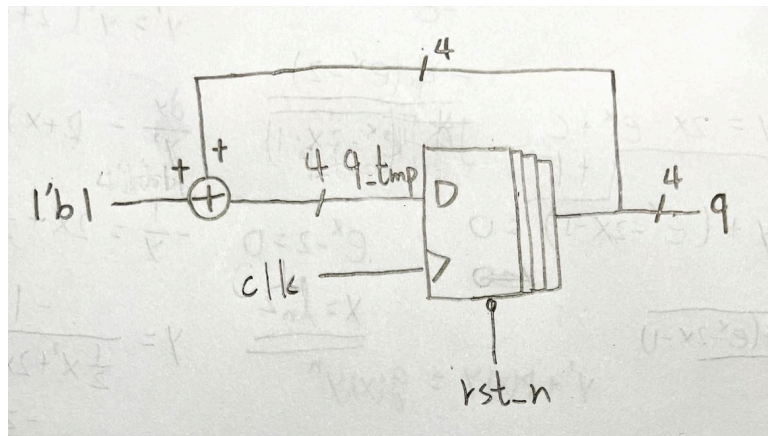 4
+
+
1'b1
+
4
q_tmp
D
4
q
clk
rst_n